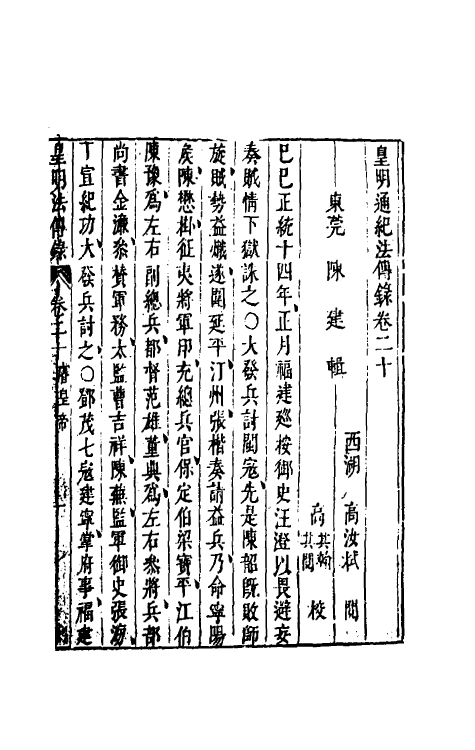 皇明通紀法傳錄卷二十
東莞 陳 建 輯
西湖 高汝栻 閱
高其翰 其閱 校
己巳正統十四年正月福建廵按御史汪澄以畏避妄
奏賊情下獄誅之〇大發兵討閩寇先是陳韶旣敗師
旋賊勢益熾遂圍延平汀州張楷奏請益兵乃命寧陽
矦陳懋掛征夷將軍印充總兵官保定伯梁寶平江伯
陳豫爲左右副總兵都督范雄董興爲左右叅將兵部
尚書金濂叅贊軍務太監曹吉祥陳蕪監軍御史張海
丁宣紀功大發兵討之〇鄧茂七寇建寧掌府事福建
皇明法傳錄 卷二十 睿皇帝